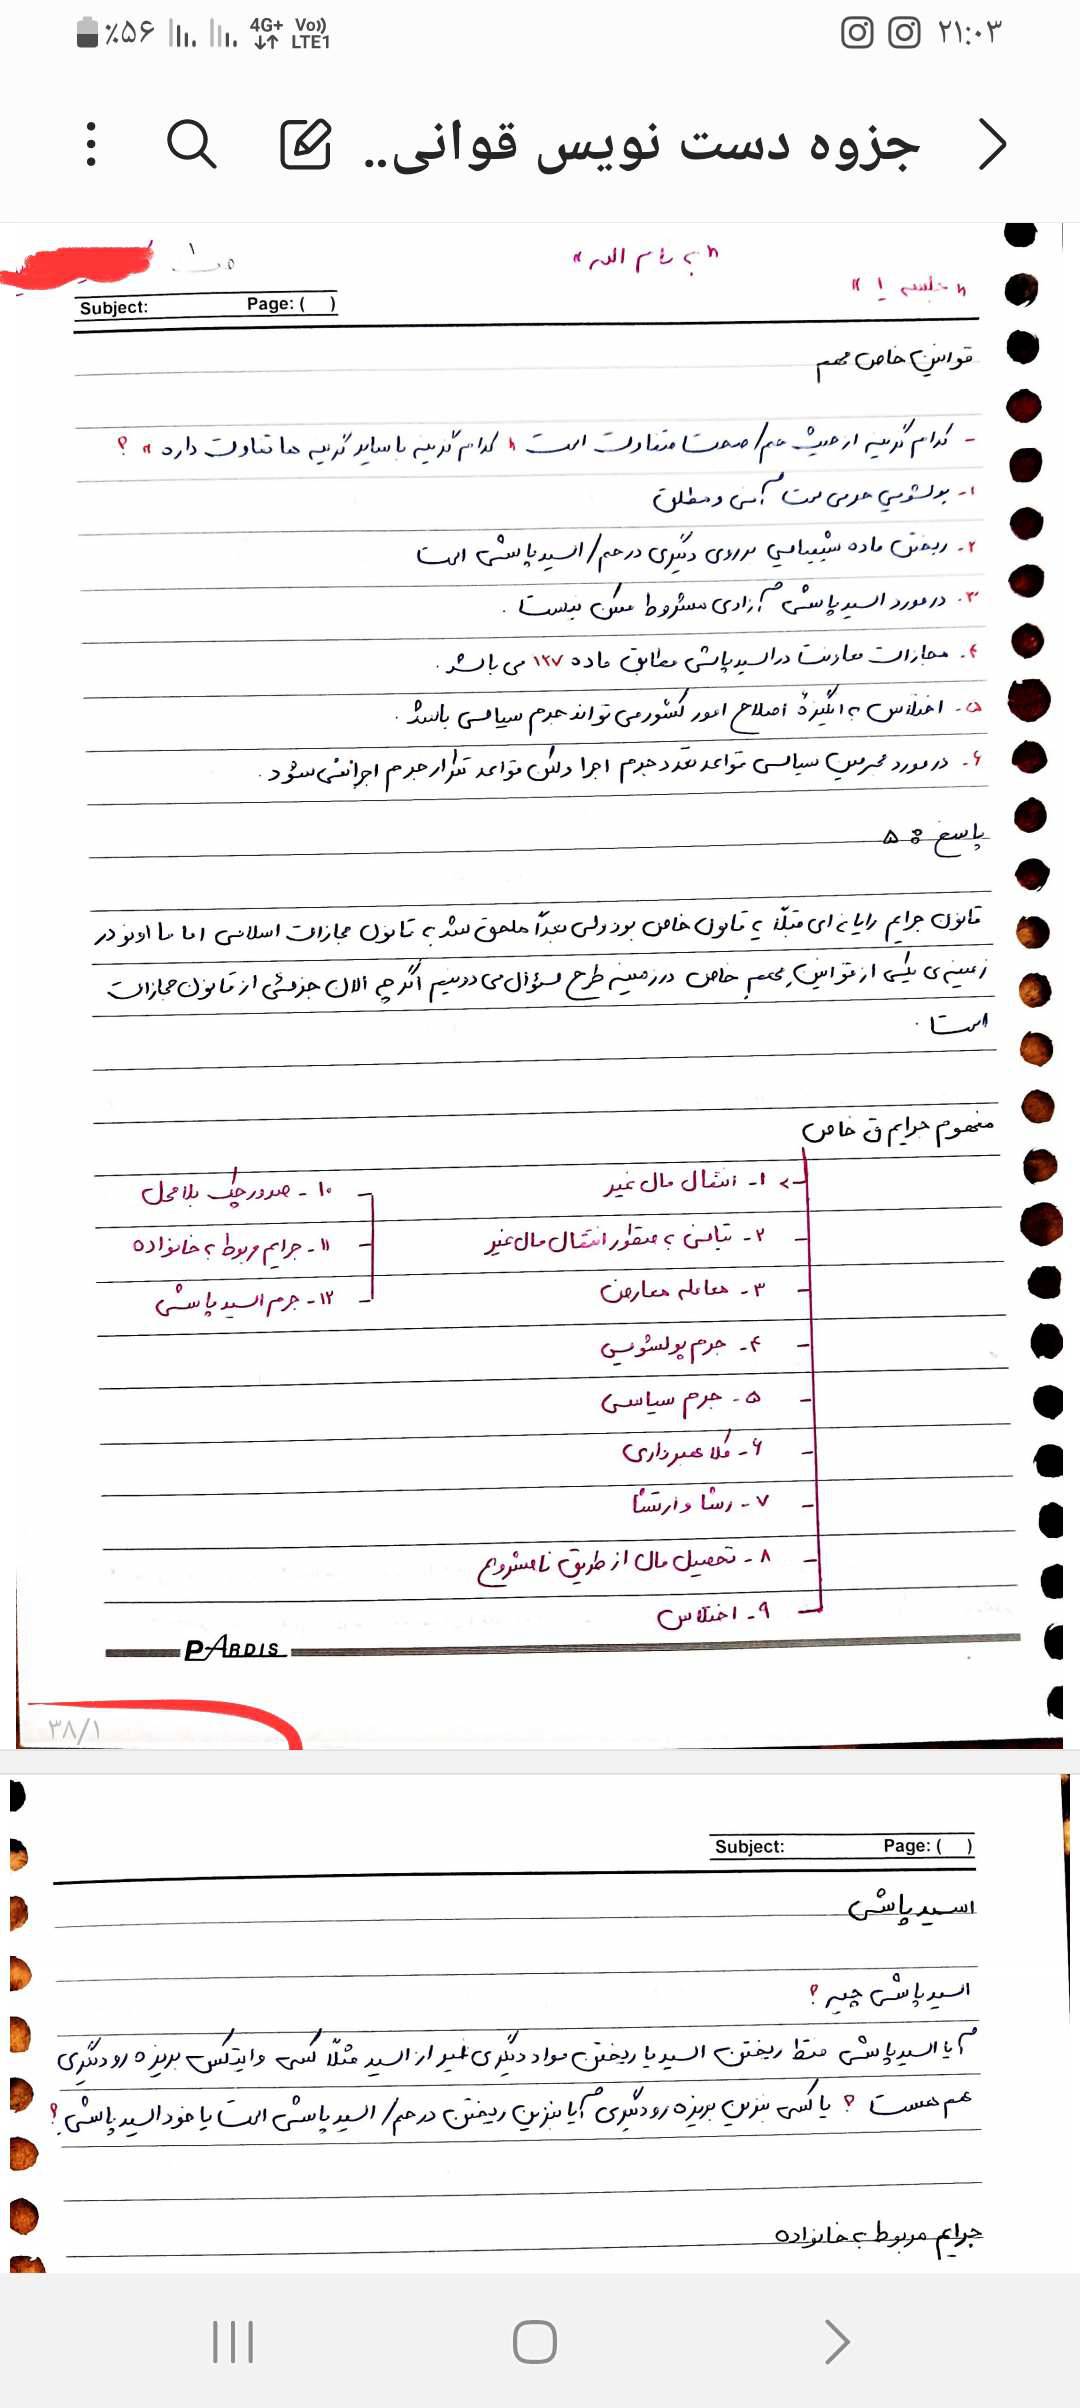 ٪۵۶ 4G+ Vo)) LTE1 ۲۱:۰۳
جزوه دست نویس قوانی..
" به نام الله "
" جلسه ۱ "
ص ۱
Subject: Page: ( )
قوانین خاص مهم
- کدام گزینه از حیث حکم/صحت متفاوت است " کدام گزینه با سایر گزینه ها تفاوت داره " ؟
۱- پولشویی جرمی است آنی و مطلق
۲- ریختن ماده شیمیایی بر روی دیگری در حکم/ اسیدپاشی است
۳- در مورد اسیدپاشی آزادی مشروط ممکن نیست .
۴- مجازات معاونت در اسیدپاشی مطابق ماده ۱۲۷ می باشد .
۵- اختلاس به انگیزهٔ اصلاح امور کشور می تواند جرم سیاسی باشد .
۶- در مورد مجرمین سیاسی قواعد تعدد جرم اجرا ولکن قواعد تکرار جرم اجرا نمی شود .
پاسخ : ۵
قانون جرایم رایانه ای قبلاً یه قانون خاص بود ولی بعداً ملحق شد به قانون مجازات اسلامی اما ما اونو در
زمینه ی یکی از قوانین مهم خاص در زمینه طرح سؤال می دونیم اگرچه الان جزئی از قانون مجازات
است .
مفهوم جرایم ق خاص
۱- انتقال مال غیر
۲- تبانی به منظور انتقال مال غیر
۳- معامله معارض
۴- جرم پولشویی
۵- جرم سیاسی
۶- کلاهبرداری
۷- رشا و ارتشا
۸- تحصیل مال از طریق نامشروع
۹- اختلاس
۱۰- صدور چک بلامحل
۱۱- جرایم مربوط به خانواده
۱۲- جرم اسیدپاشی
PARDIS
۳۸/۱
Subject: Page: ( )
اسیدپاشی
اسیدپاشی چیه ؟
آیا اسیدپاشی فقط ریختن اسید یا ریختن مواد دیگری غیر از اسید مثلاً کسی وایتکس بریزه رو دیگری
هم هست ؟ یا کسی بنزین بریزه رو دیگری آیا بنزین ریختن در حکم/ اسیدپاشی است یا خود اسیدپاشی ؟
جرایم مربوط به خانواده